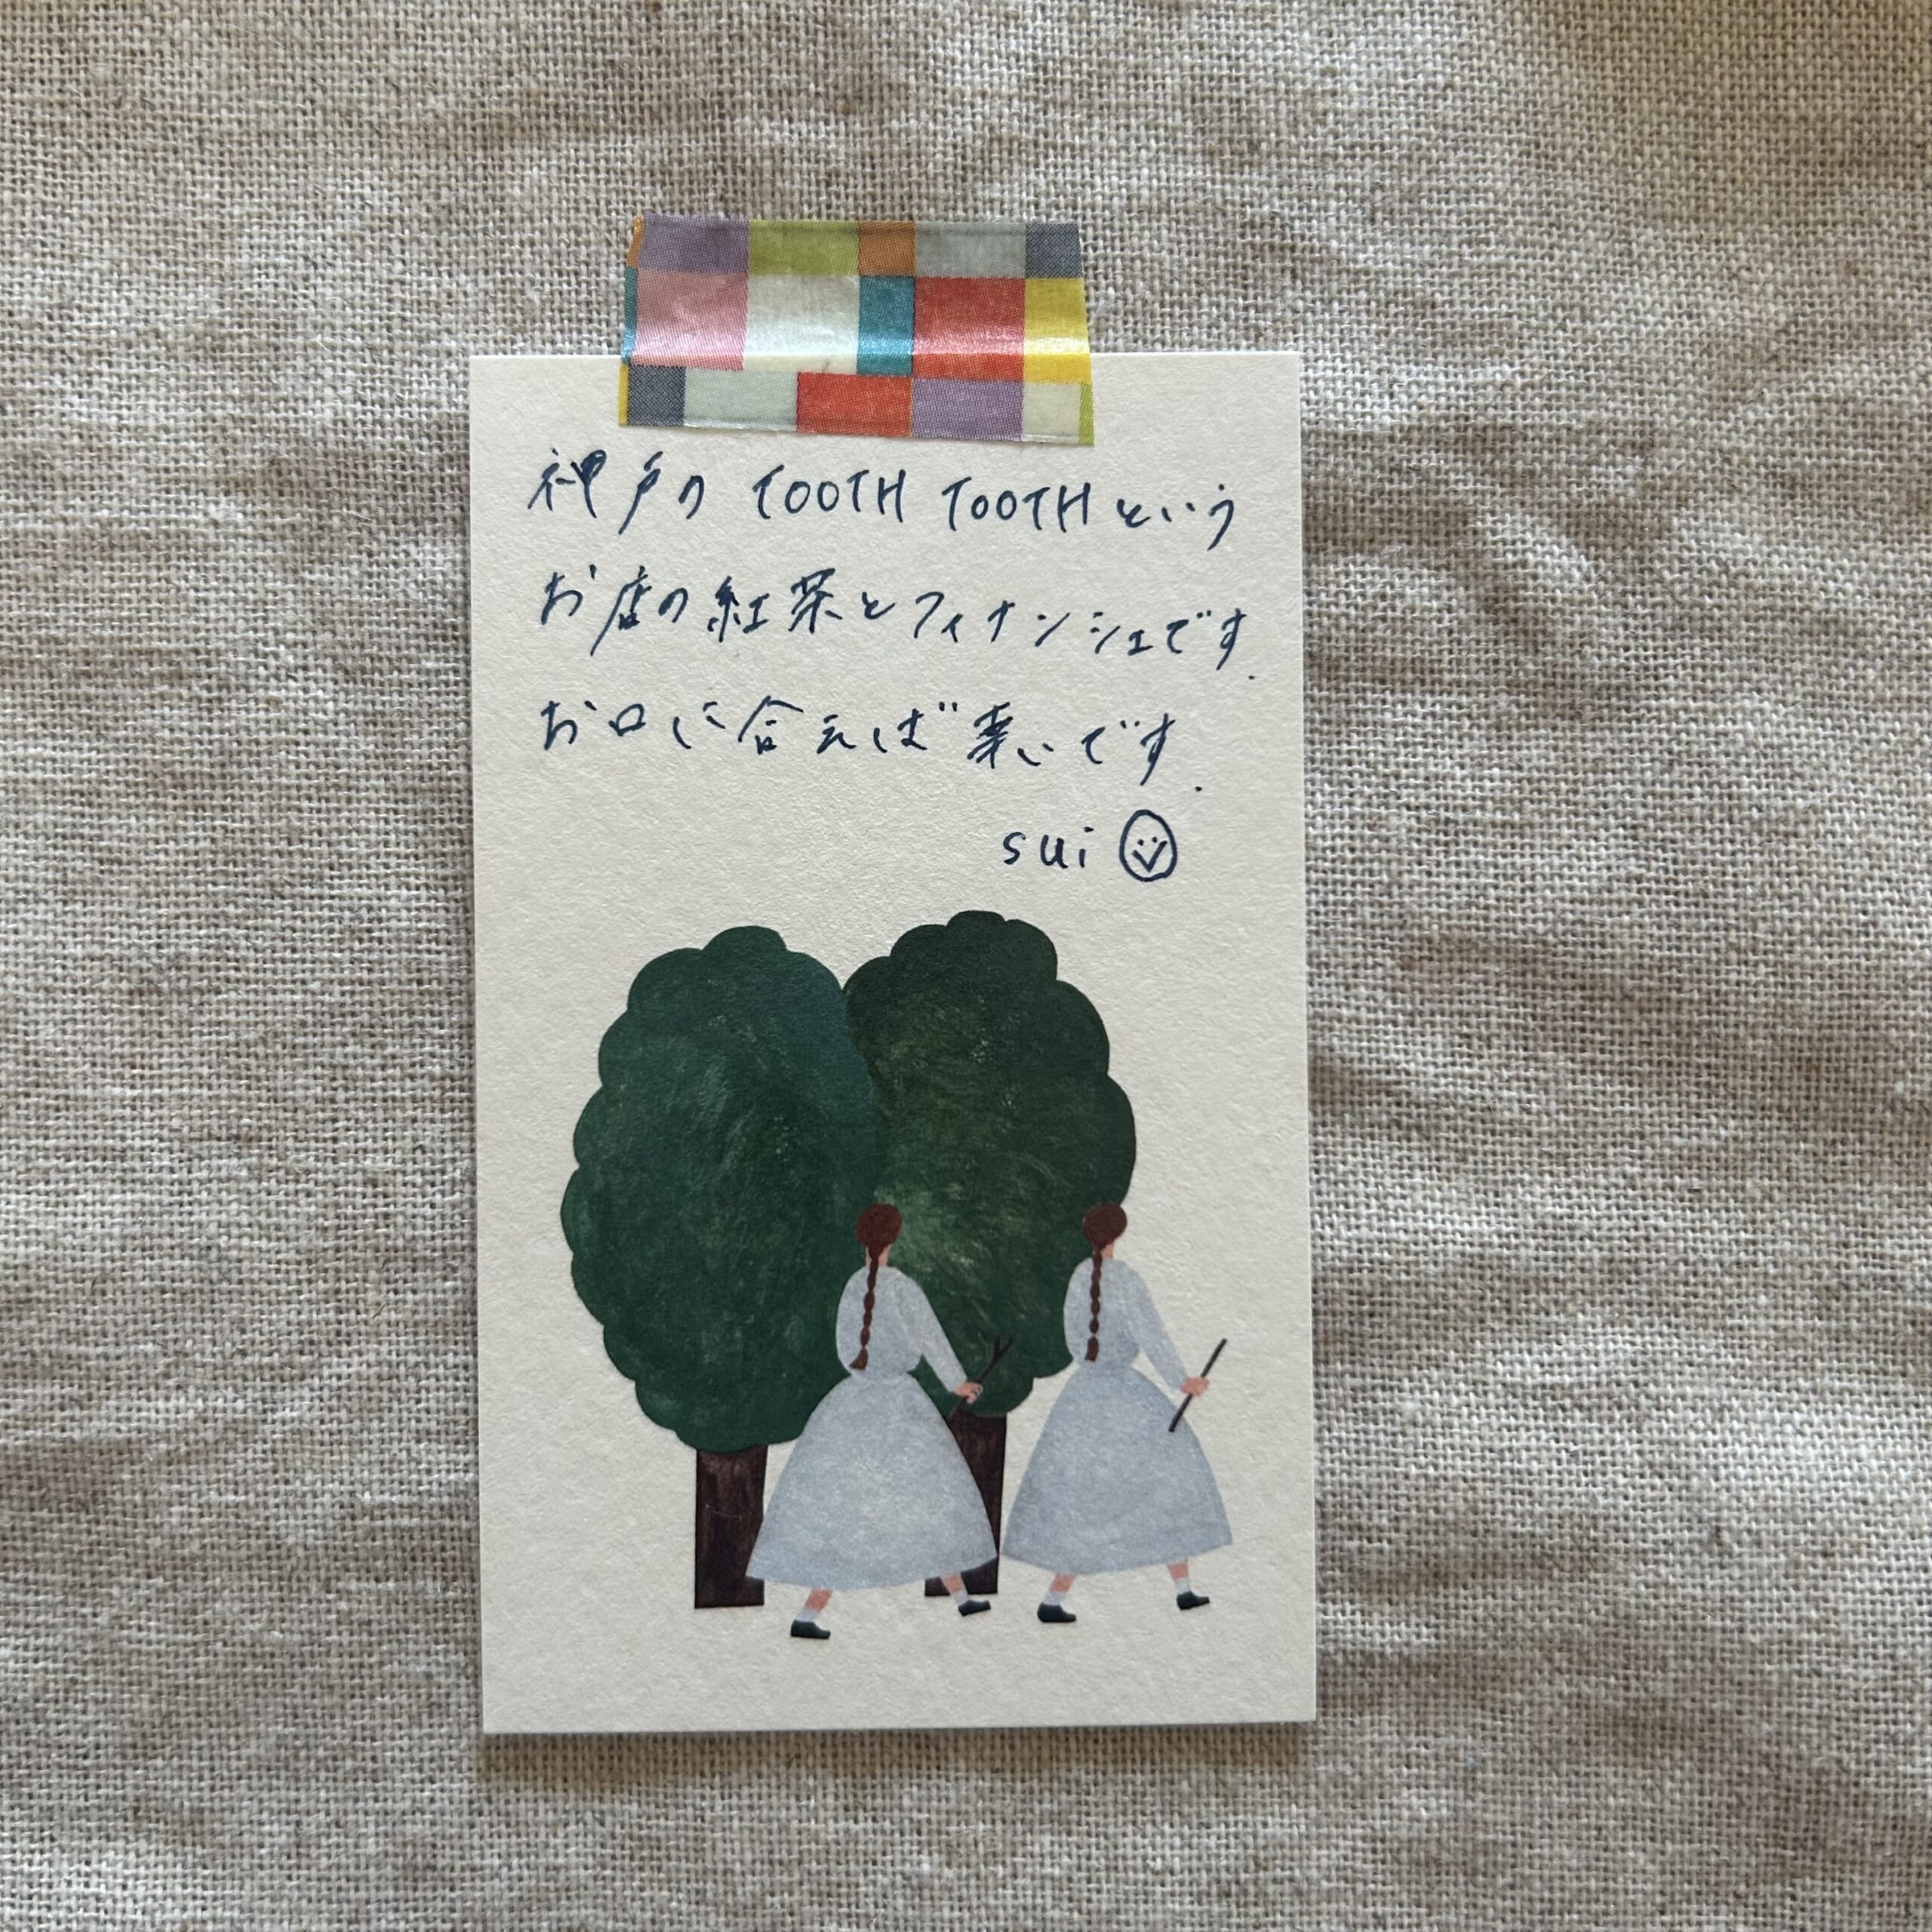 神戸の TOOTH TOOTHという
お店の紅茶とフィナンシェです.
お口に合えば幸いです.
sui